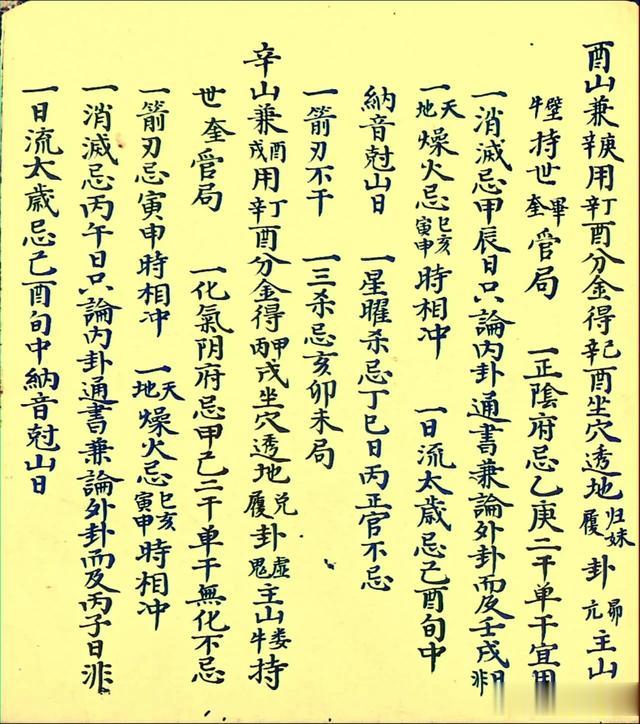 酉山兼庚辛用辛丁酉分金得辛己酉坐穴透地归妹履卦昴亢主山
牛壁持世奎畢管局 一正陰府忌乙庚二干单干宜用
一消滅忌甲辰日只論内卦通書兼論外卦而及壬戌日非
一天地燥火忌巳亥寅申時相冲 一日流太歲忌己酉旬中
納音尅山日 一星曜杀忌丁巳日丙正官不忌
一箭刃不干 一三杀忌亥卯未局
辛山兼酉戌用丁辛酉分金得甲丙戌坐穴透地兑履卦虚鬼主山娄牛持
世奎管局 一化氣阴府忌甲己二干单干無化不忌
一箭刃忌寅申時相冲 一天地燥火忌巳亥寅申時相冲
一消滅忌丙午日只論内卦通書兼論外卦而及丙子日非
一日流太歲忌己酉旬中納音尅山日